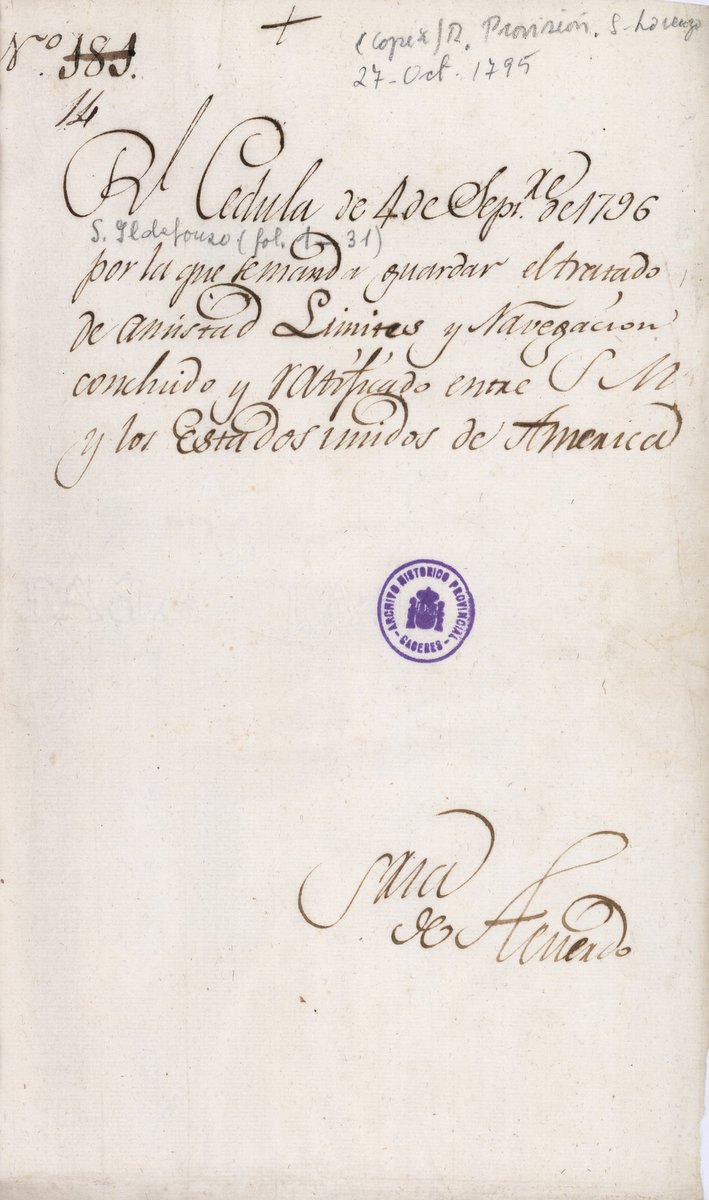 +
(Copia) R. Provisión. S. Lorenzo
27-Oct. 1795
Nº. 181.
14
Rl Cedula de 4 de Sepre. de 1796
S. Ildefonso (fol. 1 - 31)
por la que se manda guardar el tratado
de amistad Limites y Navegacion
concluido y ratificado entre S M
y los Estados unidos de America
ARCHIVO HISTORICO PROVINCIAL
- CACERES -
Sala
de Acuerdo